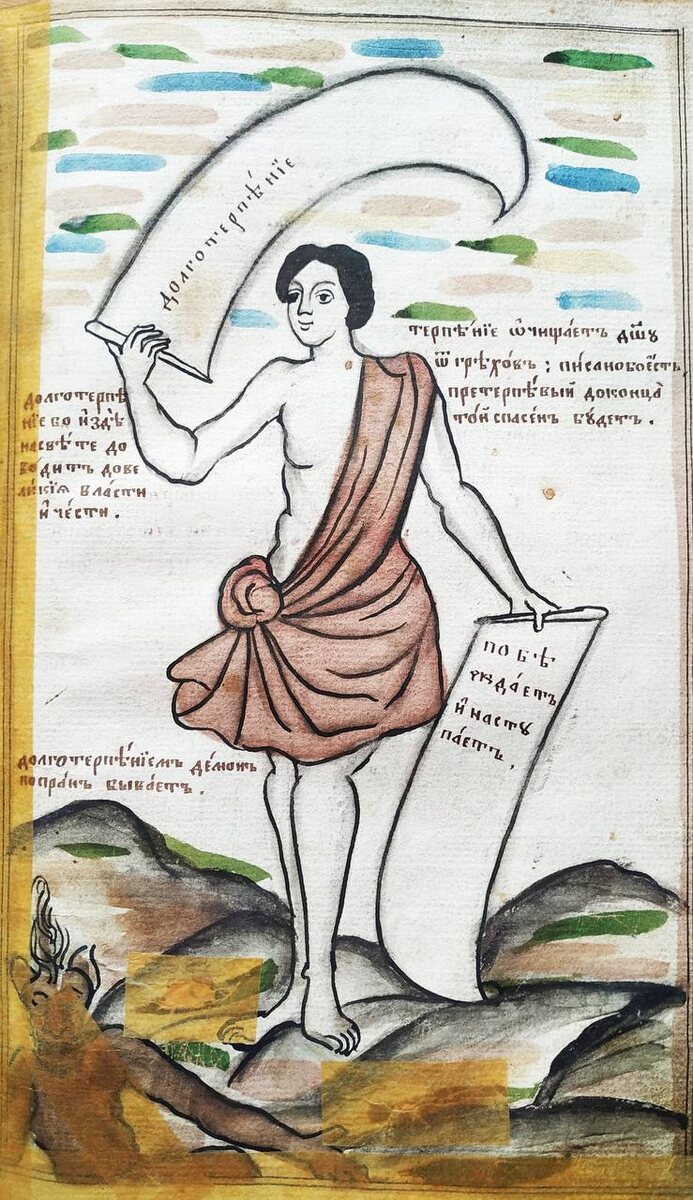 долготерпѣ́нїе
терпѣ́нїе ѡ҆чища́етъ дш҃ꙋ
ѿ грѣхо́въ : писанобое́сть
претерпѣ́вый доконца̀
то́й спасе́нъ бꙋ́детъ .
долготерпѣ
нїе бо и҆ здѣ̀
насвѣ́те до
водитъ дове
ли́кїѧ власти
и҆ че́сти .
побѣ
жда́етъ
и҆ настꙋ
па́етъ .
долготерпѣ́нїемъ де́монъ
попранъ быва́етъ .